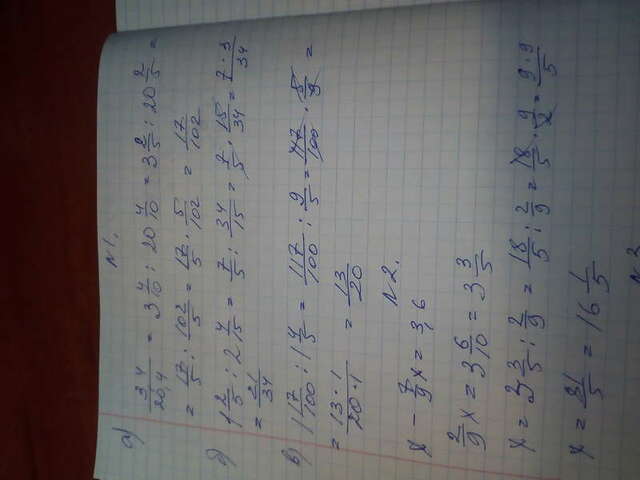 N1.
а) 3,4/20,4 = 3 4/10 : 20 4/10 = 3 2/5 : 20 2/5 =
= 17/5 : 102/5 = 17/5 · 5/102 = 17/102
б) 1 2/5 : 2 4/15 = 7/5 : 34/15 = 7/5 · 15/34 = 7·3/34
= 21/34
в) 1 17/100 : 1 4/5 = 117/100 : 9/5 = 117/100 · 5/9 =
= 13·1/20·1 = 13/20
N2.
x - 7/9 x = 3,6
2/9 x = 3 6/10 = 3 3/5
x = 3 3/5 : 2/9 = 18/5 : 2/9 = 18/5 · 9/2 = 9·9/5
x = 81/5 = 16 1/5
N3